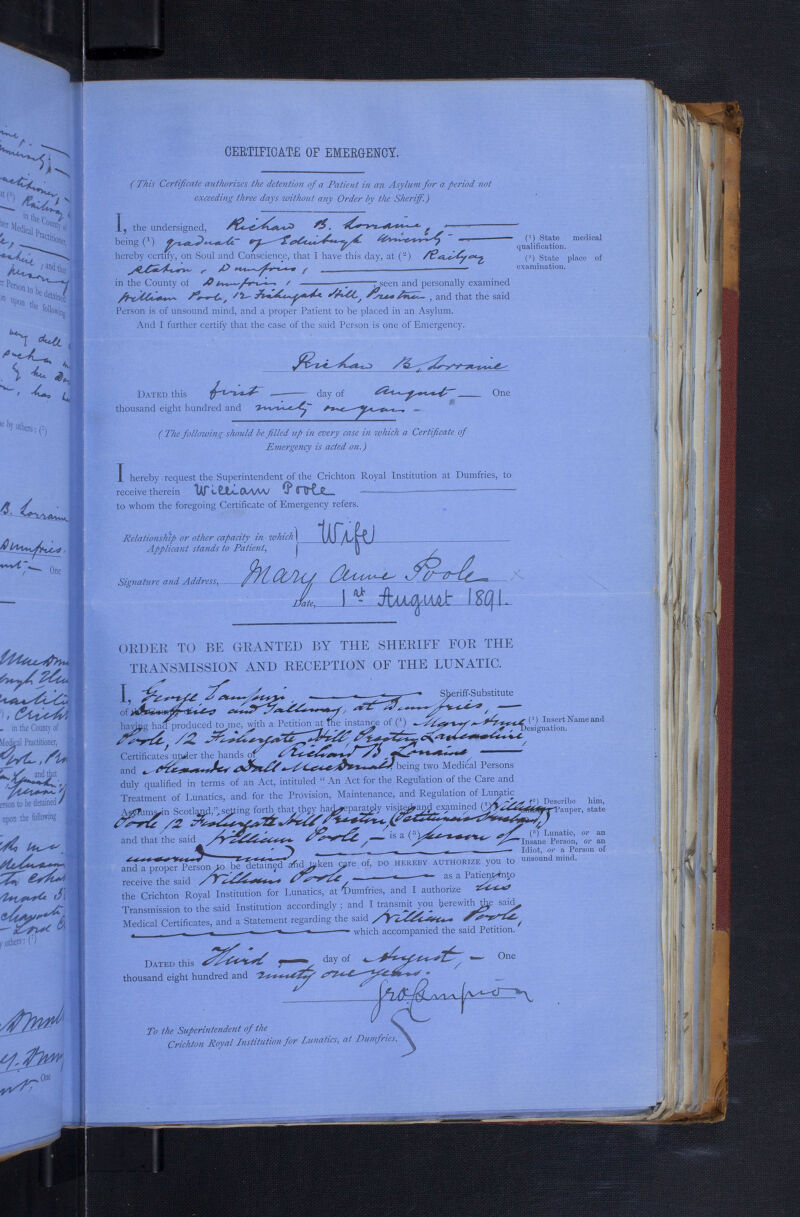 CERTIFICATE OF EMERGENCY.
(This Certificate authorizes the detention of a Patient in an Asylum for a period not
exceeding three days without any Order by the Sheriff.)
I, the undersigned, Richard B. Lorraine,
being (¹) graduate of Edinburgh University
hereby certify, on Soul and Conscience, that I have this day, at (²) Railway
Station, Dumfries,
in the County of Dumfries, seen and personally examined
William Poole, 12 Fishergate Hill, Preston, and that the said
Person is of unsound mind, and a proper Patient to be placed in an Asylum.
And I further certify that the case of the said Person is one of Emergency.
(¹) State medical
qualification.
(²) State place of
examination.
Richard B. Lorraine
DATED this first day of August One
thousand eight hundred and ninety one years
(The following should be filled up in every case in which a Certificate of
Emergency is acted on.)
I hereby request the Superintendent of the Crichton Royal Institution at Dumfries, to
receive therein William Poole
to whom the foregoing Certificate of Emergency refers.
Relationship or other capacity in which
Applicant stands to Patient, Wife
Signature and Address, Mary Anne Poole
Date, 1st August 1891.
ORDER TO BE GRANTED BY THE SHERIFF FOR THE
TRANSMISSION AND RECEPTION OF THE LUNATIC.
I, George Campion Sheriff-Substitute
of Dumfries and Galloway, at Dumfries,
having had produced to me, with a Petition at the instance of (¹) Mary Anne
Poole, 12 Fishergate Hill Preston Lancashire
Certificates under the hands of Richard B Lorraine
and Alexander MacDonald being two Medical Persons
duly qualified in terms of an Act, intituled "An Act for the Regulation of the Care and
Treatment of Lunatics, and for the Provision, Maintenance, and Regulation of Lunatic
Asylums in Scotland," setting forth that they had separately visited and examined (²) William
Poole 12 Fishergate Hill Preston
and that the said William Poole is a (³) person of
unsound mind
and a proper Person to be detained and taken care of, DO HEREBY AUTHORIZE you to
receive the said William Poole as a Patient into
the Crichton Royal Institution for Lunatics, at Dumfries, and I authorize his
Transmission to the said Institution accordingly; and I transmit you herewith the said
Medical Certificates, and a Statement regarding the said William Poole,
which accompanied the said Petition.
(¹) Insert Name and
Designation.
(²) Describe him,
Pauper, state
(³) Lunatic, or an
Insane Person, or an
Idiot, or a Person of
unsound mind.
DATED this Third day of August, One
thousand eight hundred and ninety one years.
Geo. Campion
To the Superintendent of the
Crichton Royal Institution for Lunatics, at Dumfries.